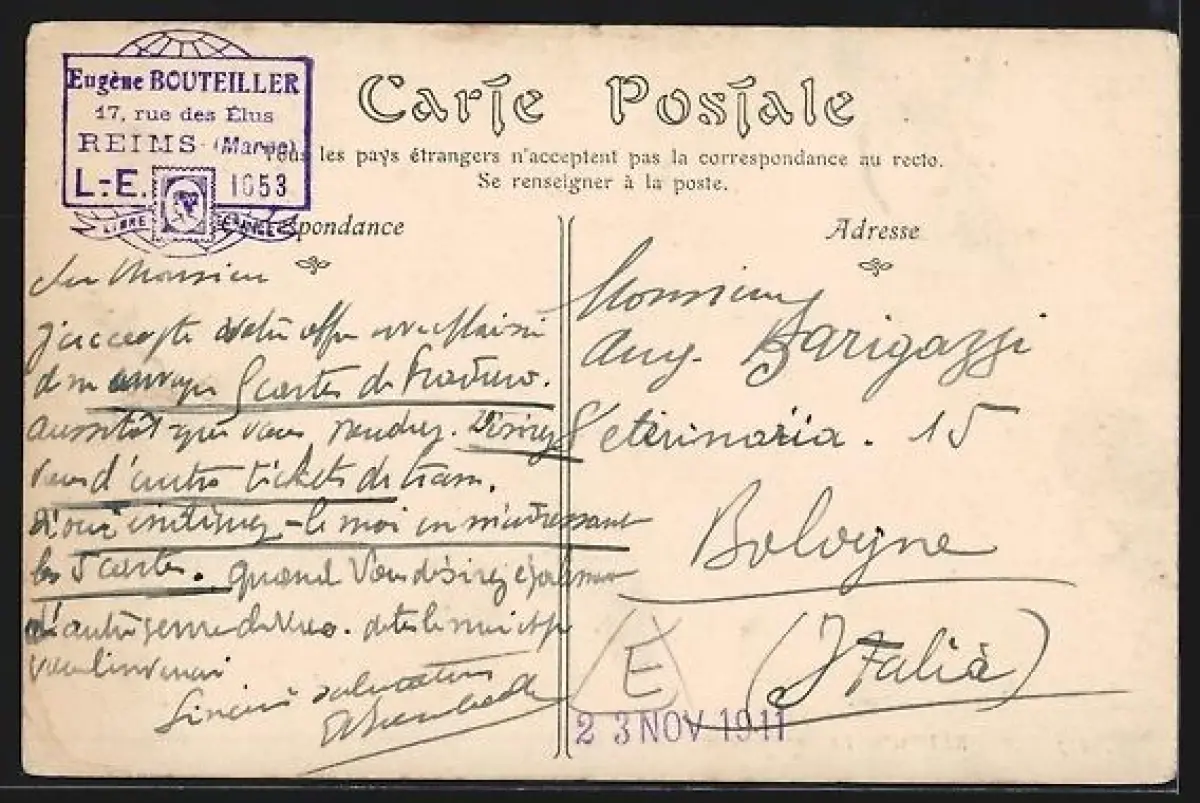 Eugène BOUTEILLER
17, rue des Élus
REIMS (Marne)
L.-E. 1053
LIBRE
Carte Postale
Tous les pays étrangers n'acceptent pas la correspondance au recto.
Se renseigner à la poste.
Correspondance
Adresse
Cher Monsieur
j'accepte votre offre
5 cartes de
aussitôt que vous voudrez. Désirez
vous d'autres tickets de tram.
Si oui indiquez-le moi en m'adressant
les 5 cartes. quand vous désirez également
d'autre genre de vues. dites le moi et je
vous enverrai
Sincères salutations
Monsieur
Aug. Barigazzi
Veterinaria. 15
Bologne
(Italià)
E
23 NOV 1911